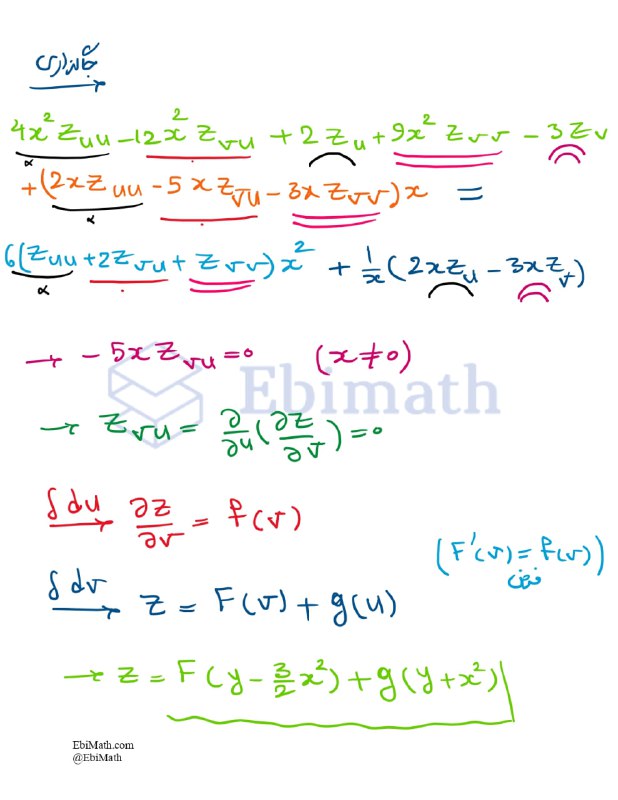 جاگذاری
4x² Zuu - 12x² Zvu + 2Zu + 9x² Zvv - 3Zv
+ (2xZuu - 5xZvu - 3xZvv)x =
6(Zuu + 2Zvu + Zvv)x² + 1/x (2xZu - 3xZv)
→ - 5xZvu = 0 (x ≠ 0)
Ebimath
→ Zvu = ∂/∂u (∂z/∂v) = 0
∫du → ∂z/∂v = f(v)
(F'(v) = f(v))
فرض
∫dv → z = F(v) + g(u)
→ z = F(y - 3/2 x²) + g(y + x²)
EbiMath.com
@EbiMath